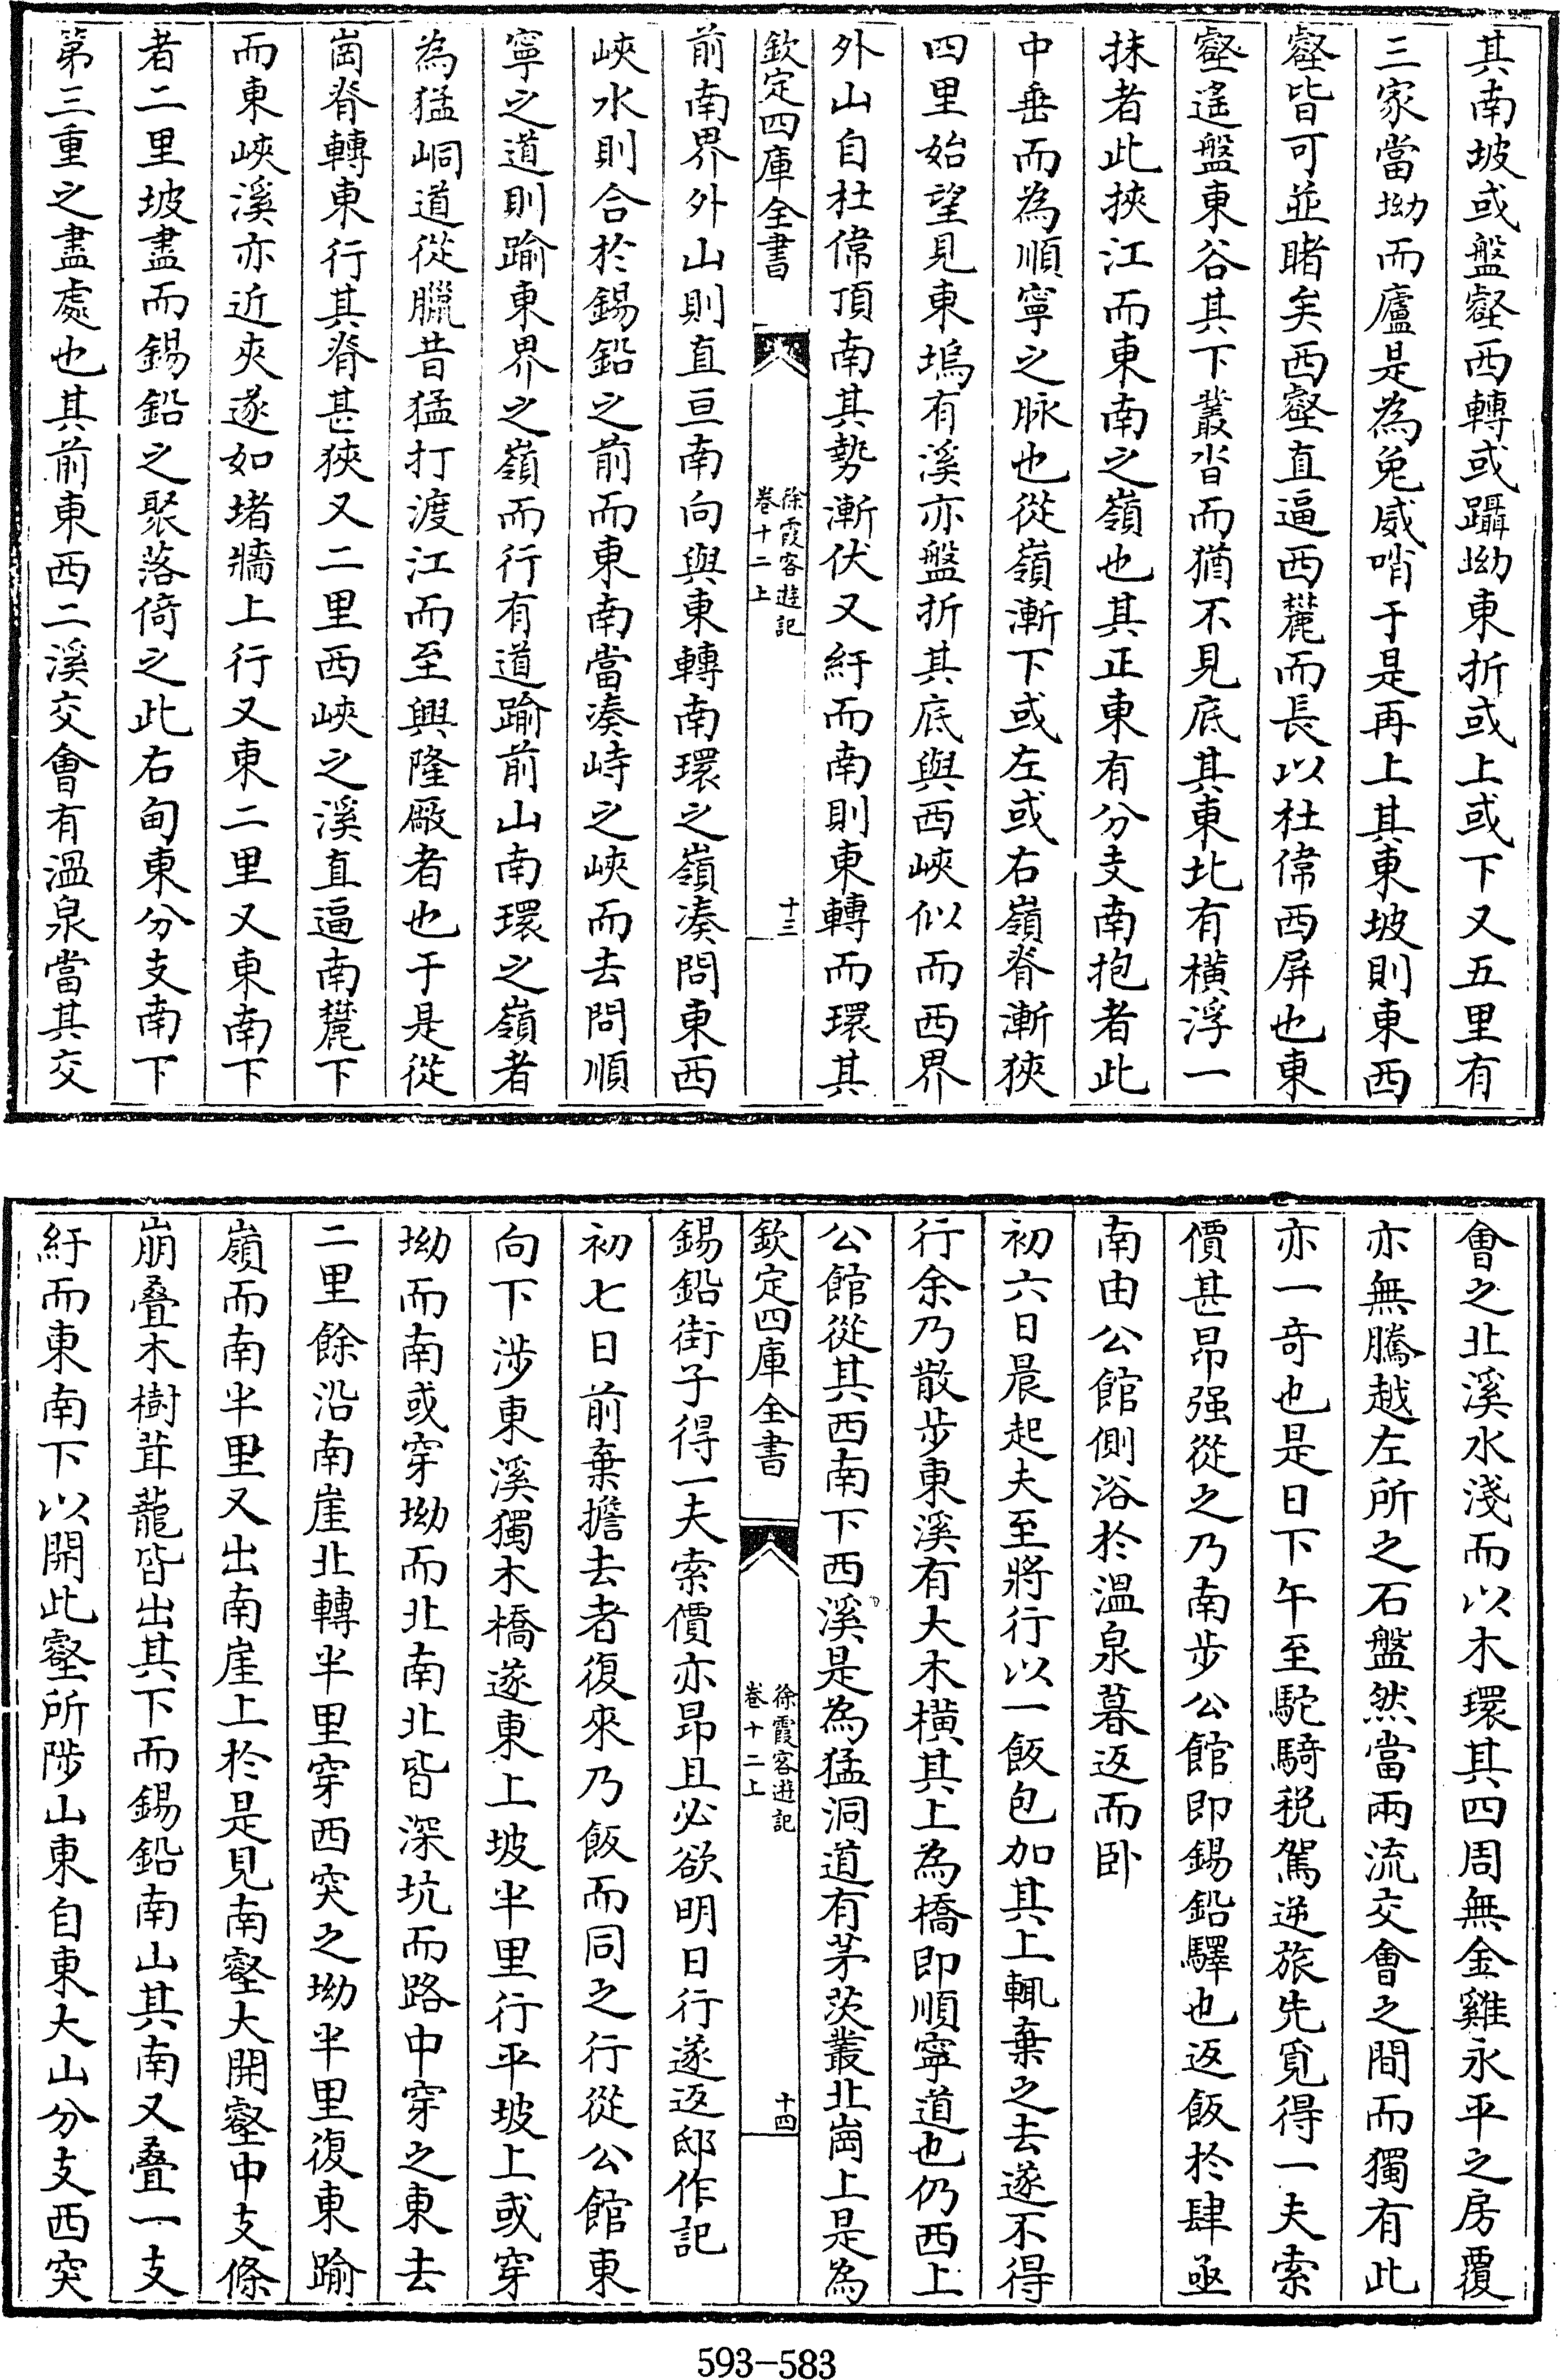 其南坡或盤壑西轉或躡坳東折或上或下又五里有
三家當坳而廬是為兔威哨于是再上其東坡則東西
壑皆可並睹矣西壑直逼西麓而長以杜偉西屏也東
壑遙盤東谷其下叢沓而猶不見底其東北有橫浮一
抹者此挾江而東南之嶺也其正東有分支南抱者此
中垂而為順寧之脉也從嶺漸下或左或右嶺脊漸狹
四里始望見東塢有溪亦盤折其底與西峽似而西界
外山自杜偉頂南其勢漸伏又紆而南則東轉而環其
欽定四庫全書
徐霞客遊記
卷十二上
十三
前南界外山則直亘南向與東轉南環之嶺湊問東西
峽水則合於錫鉛之前而東南當湊峙之峽而去問順
寧之道則踰東界之嶺而行有道踰前山南環之嶺者
為猛峒道從臘昔猛打渡江而至興隆廠者也于是從
崗脊轉東行其脊甚狹又二里西峽之溪直逼南麓下
而東峽溪亦近夾遂如堵牆上行又東二里又東南下
者二里坡盡而錫鉛之聚落倚之此右甸東分支南下
第三重之盡處也其前東西二溪交會有溫泉當其交
會之北溪水淺而以木環其四周無金雞永平之房覆
亦無騰越左所之石盤然當兩流交會之間而獨有此
亦一奇也是日下午至駝騎税駕逆旅先覓得一夫索
價甚昂强從之乃南步公館即錫鉛驛也返飯於肆亟
南由公館側浴於溫泉暮返而卧
初六日晨起夫至將行以一飯包加其上輒棄之去遂不得
行余乃散步東溪有大木橫其上為橋即順寧道也仍西上
公館從其西南下西溪是為猛洞道有茅茨叢北崗上是為
欽定四庫全書
徐霞客遊記
卷十二上
十四
錫鉛街子得一夫索價亦昂且必欲明日行遂返邸作記
初七日前棄擔去者復來乃飯而同之行從公館東
向下涉東溪獨木橋遂東上坡半里行平坡上或穿
坳而南或穿坳而北南北皆深坑而路中穿之東去
二里餘沿南崖北轉半里穿西突之坳半里復東踰
嶺而南半里又出南崖上於是見南壑大開壑中支條
崩叠木樹茸蘢皆出其下而錫鉛南山其南又叠一支
紆而東南下以開此壑所陟山東自東大山分支西突
593-583